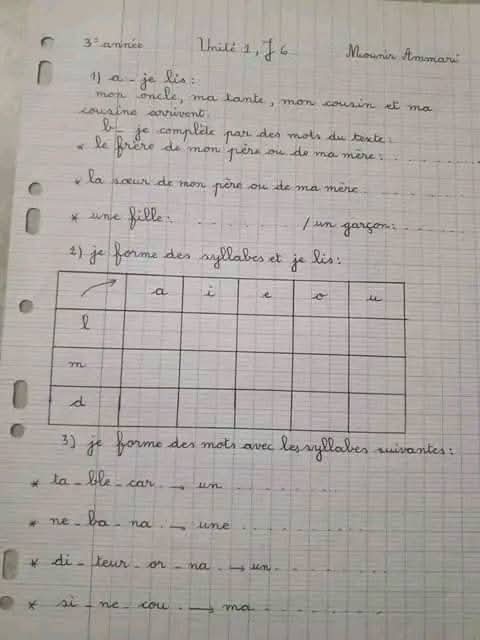 3° année Unité 1, J 6 Mounir Ammari
1) a - je lis:
mon oncle, ma tante, mon cousin et ma
cousine arrivent.
b - je complète par des mots du texte:
* le frère de mon père ou de ma mère: . . . . . . . .
* la sœur de mon père ou de ma mère . . . . . . . .
* une fille: . . . . . . . . / un garçon: . . . . . . . .
2) je forme des syllabes et je lis:
a i e o u
l
m
d
3) je forme des mots avec les syllabes suivantes:
* ta - ble - car → un . . . . . . . .
* ne - ba - na → une . . . . . . . .
* di - teur - or - na → un . . . . . . . .
* si - ne - cou → ma . . . . . . . .